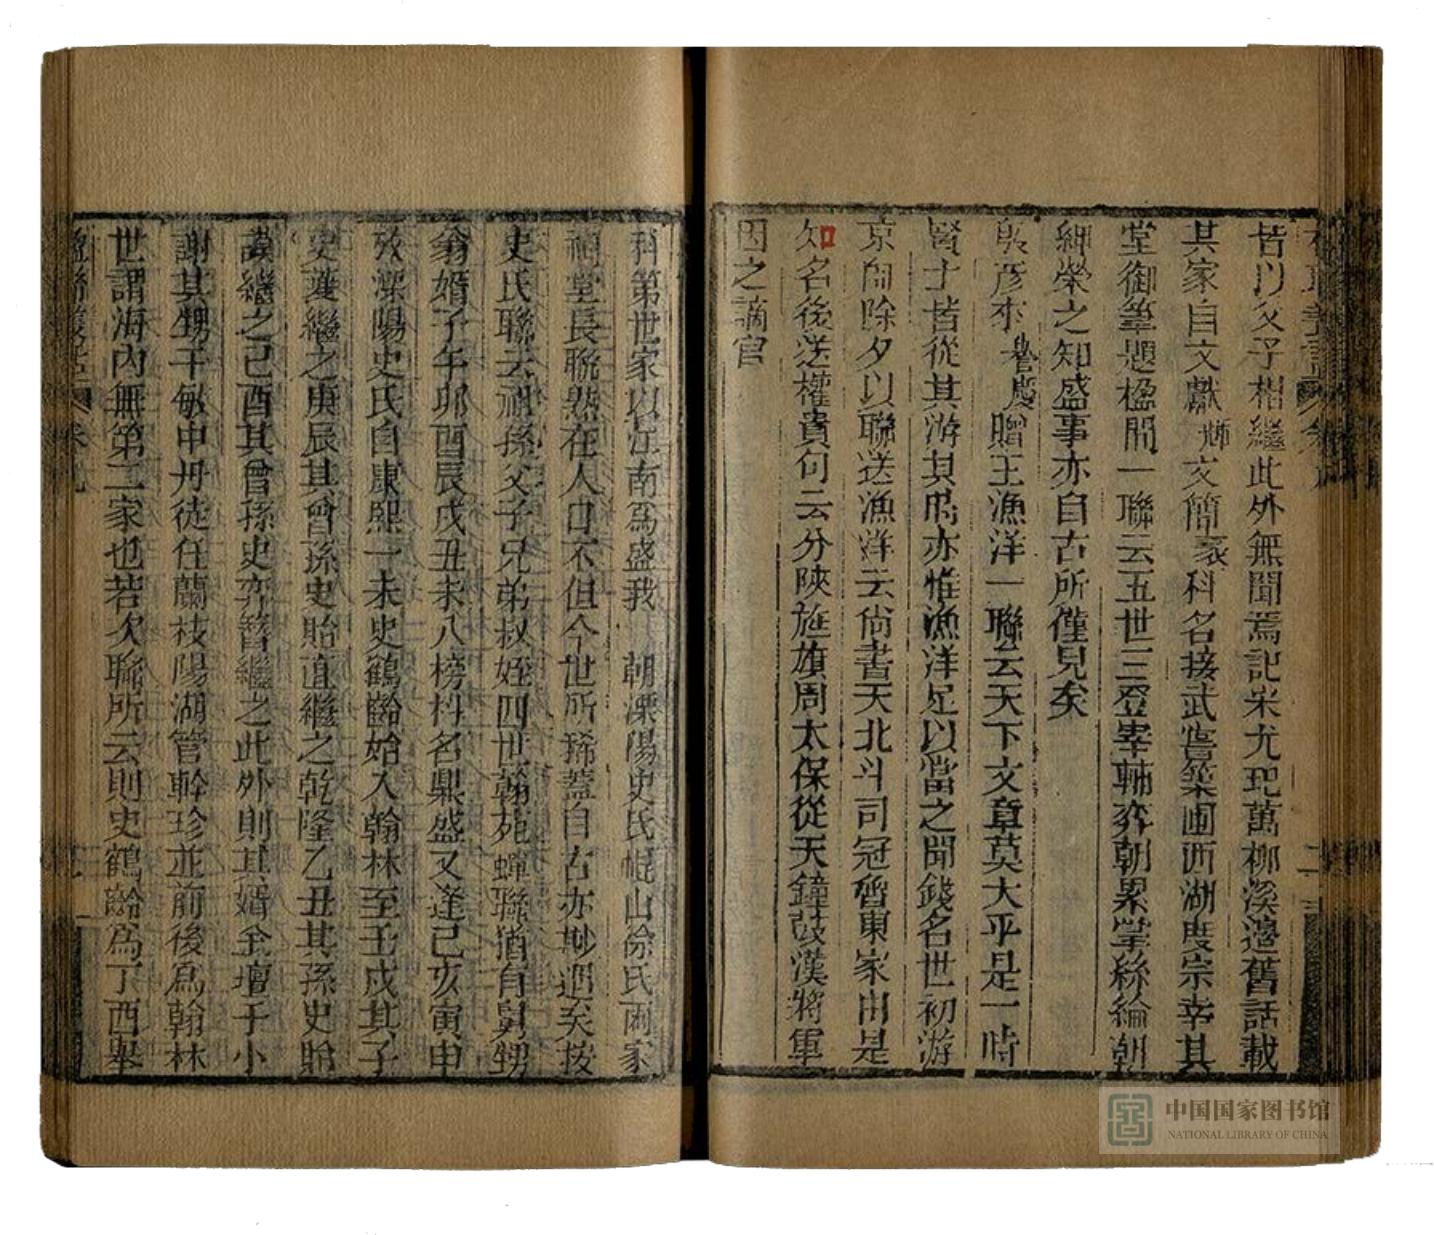 皆以父子相繼此外無聞焉記宋尤玘萬柳溪邊舊話載
其家自文獻輝文簡袤科名接武嘗築圃西湖度宗幸其
堂御筆題楹間一聯云五世三登宰輔奕朝累掌絲綸朝
紳榮之知盛事亦自古所僅見矣
吳彥來譽慶贈王漁洋一聯云天下文章莫大乎是一時
賢士皆從其游其時亦惟漁洋足以當之聞錢名世初游
京師除夕以聯送漁洋云尙書天北斗司冠魯東家由是
知名後送權貴句云分陝旌旗周太保從天鐘鼓漢將軍
因之謫官
科第世家以江南爲盛我 朝溧陽史氏崑山徐氏兩家
祠堂長聯熟在人口不但今世所稀蓋自古亦尠迥矣按
史氏聯云祖孫父子兄弟叔姪四世翰苑蟬聯猶有舅甥
翁婿子午卯酉辰戌丑未八榜科名鼎盛又逢己亥寅申
攷溧陽史氏自康熙丁未史鶴齡始入翰林至壬戌其子
史夔繼之庚辰其曾孫史貽直繼之乾隆乙丑其孫史貽
謨繼之己酉其曾孫史弈簪繼之此外則其婿金壇于小
謝其甥于敏中丹徒任蘭枝陽湖管幹珍並前後爲翰林
世謂海內無第二家也若次聯所云則史鶴齡爲丁酉舉
楹聯叢話 卷九
中国国家图书馆
NATIONAL LIBRARY OF CHINA